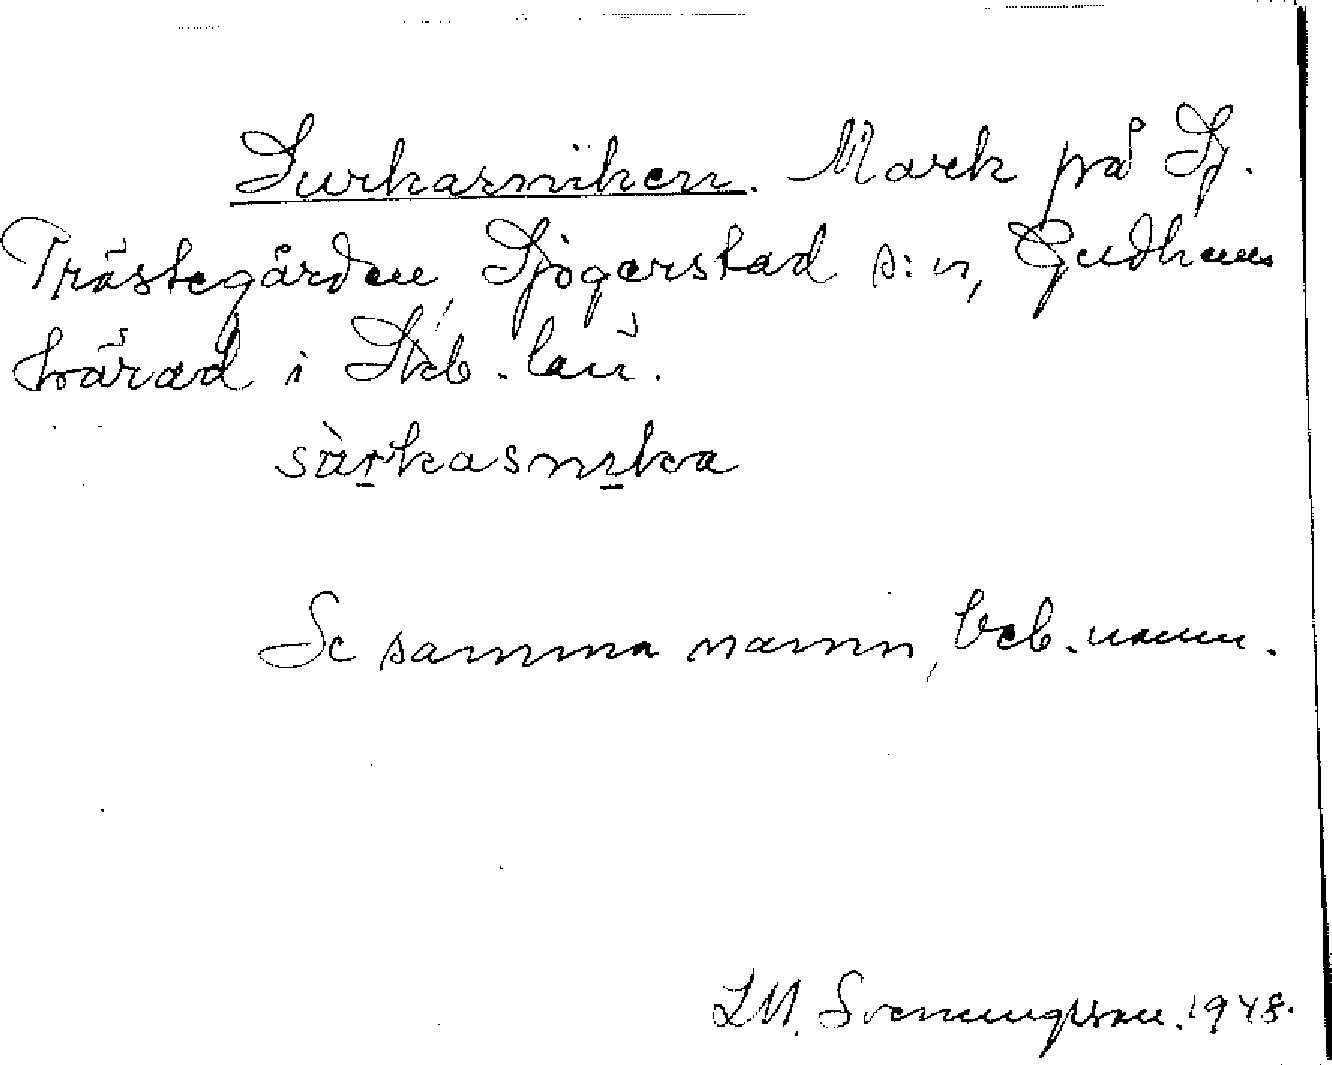 Surkasniken. Mark på Sj.
Prästegården, Sjogerstad s:n, Gudhems
härad i Skb. län.
sùrkasnika
Se samma namn, beb. namn.
LM. Svenungsson. 1948.